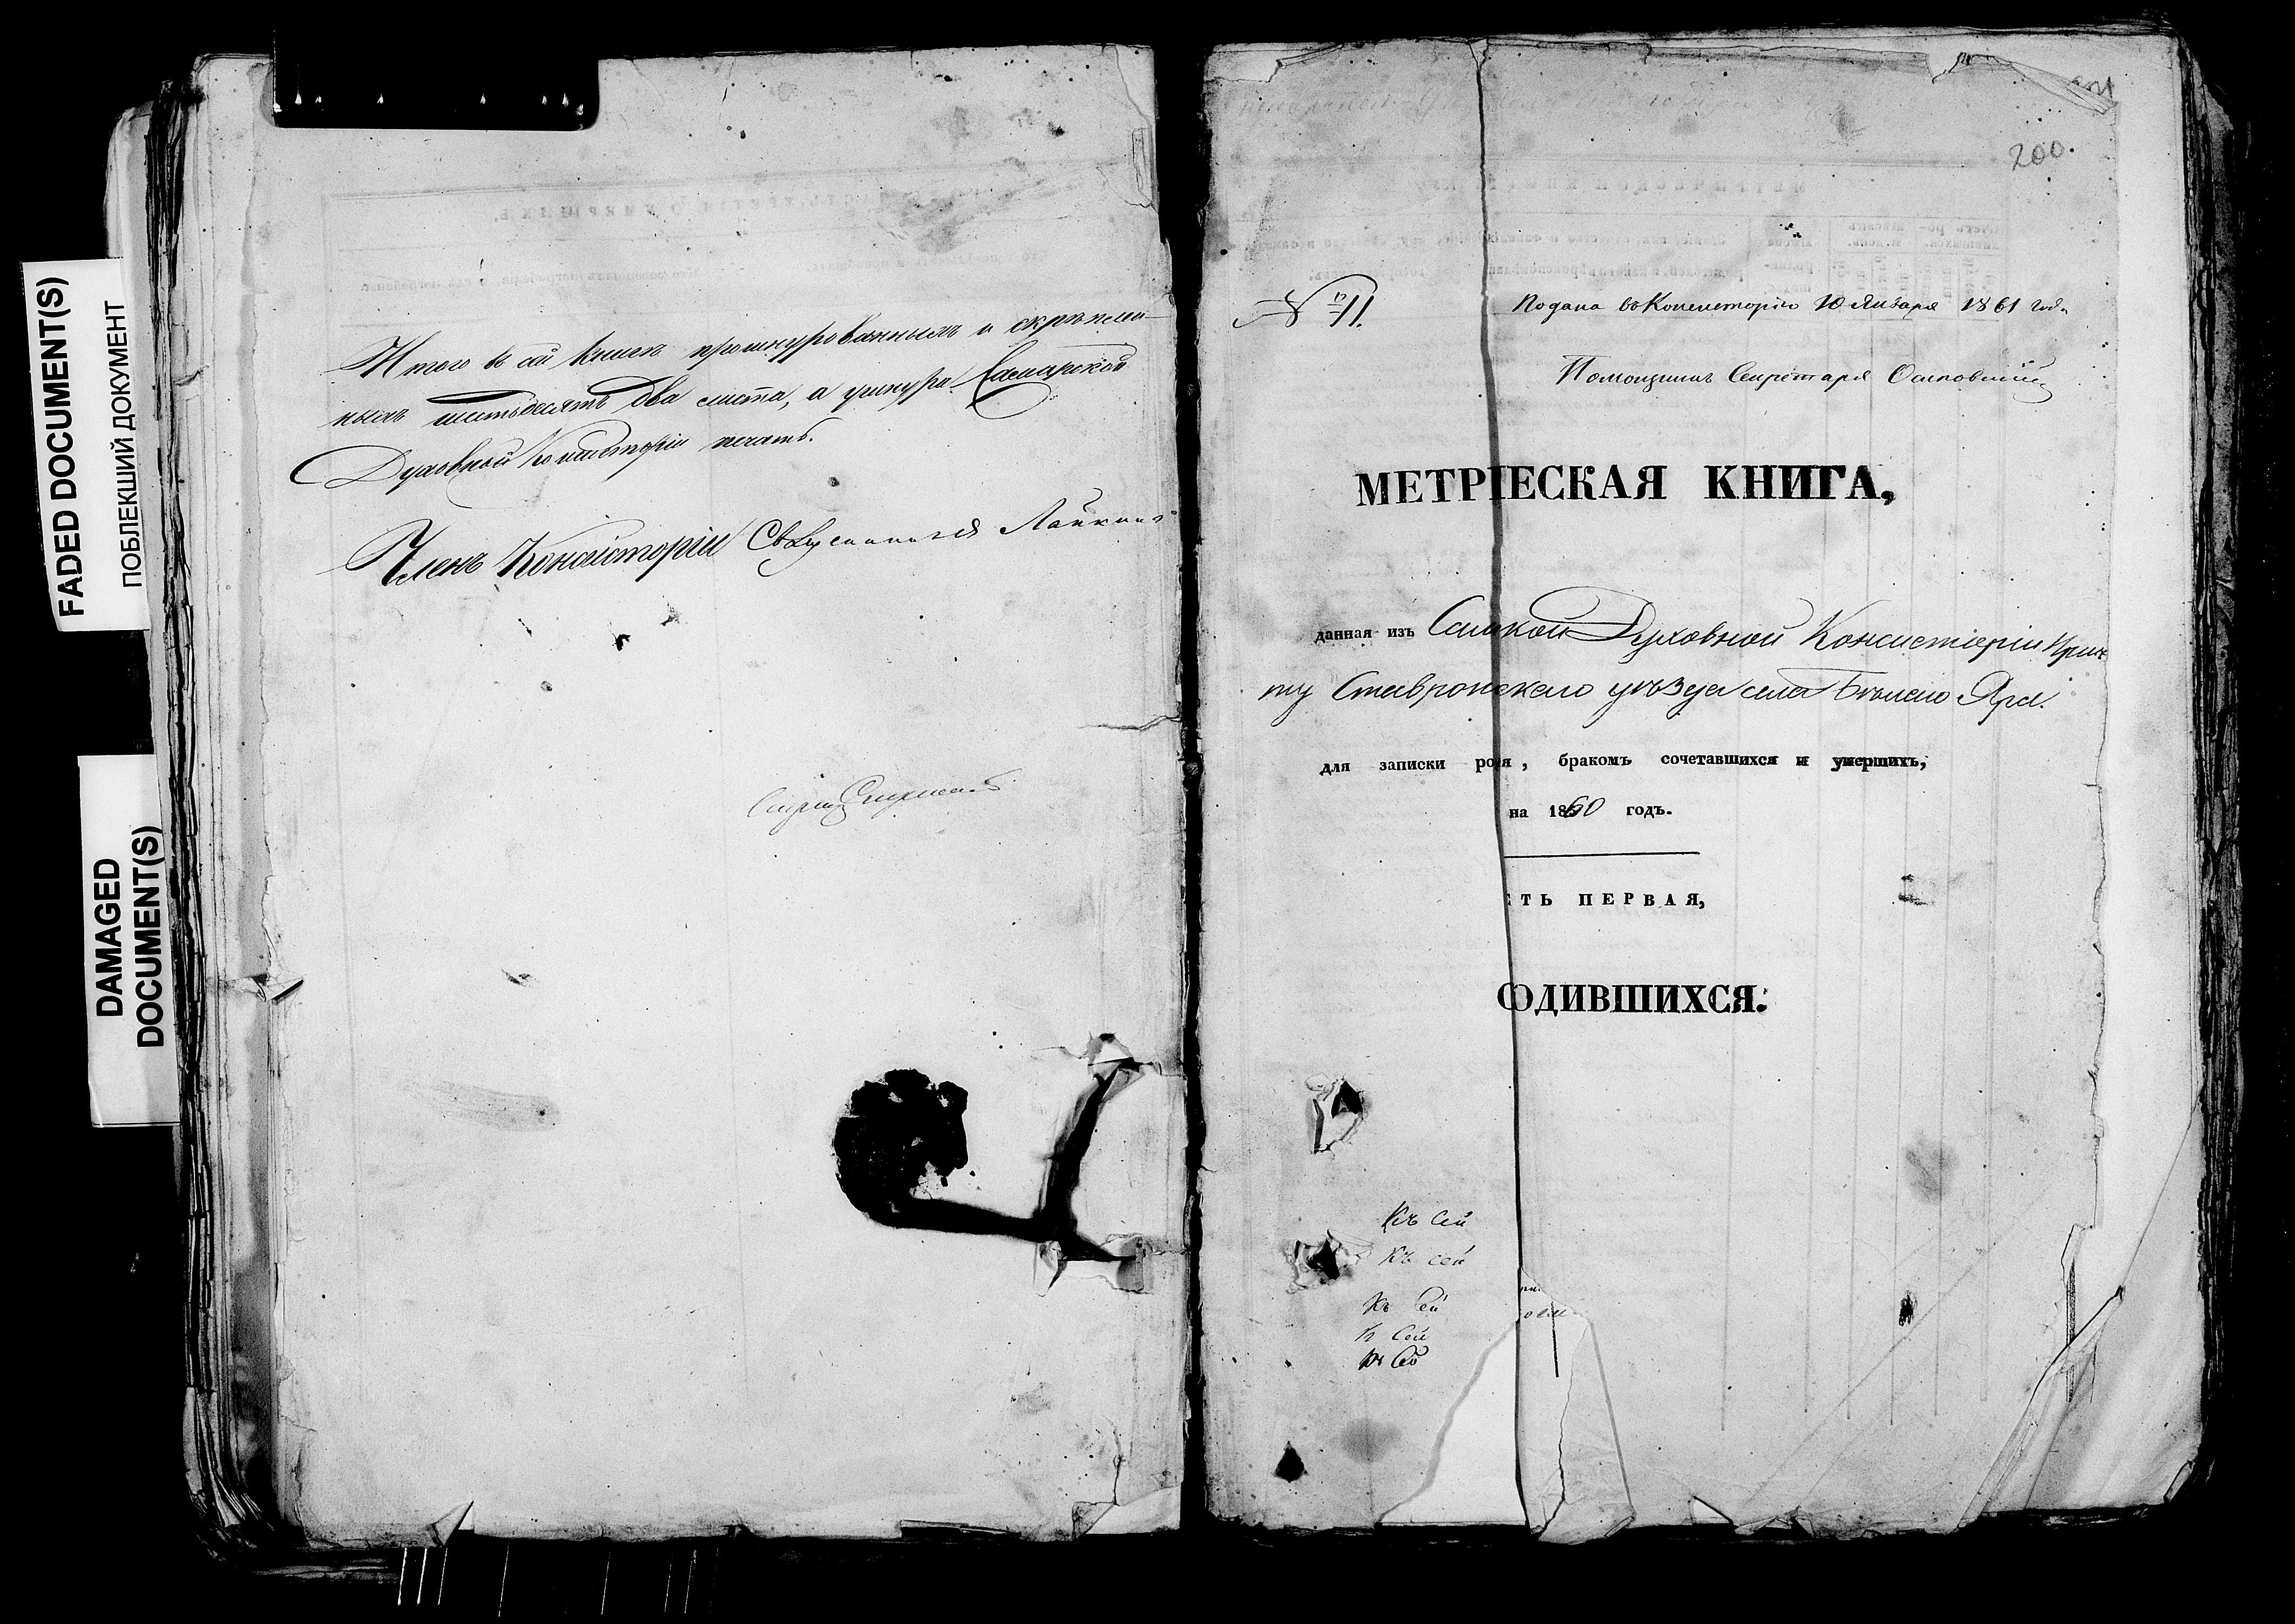 FADED DOCUMENT(S)
ПОБЛЕКШИЙ ДОКУМЕНТ
DAMAGED
DOCUMENT(S)
Итого в сей книгѣ прошнурованныхъ и скрѣплен-
ныхъ шестьдесятъ два листа, а у шнура Самарской
Духовной Консисторіи печать.
Членъ Консисторіи Священникъ
200.
№ 11.
Подана въ Консисторію 10 Января 1861 года
Помощникъ Секретаря
МЕТРІЕСКАЯ КНИГА,
данная изъ Самкой Духовной Консисторіи Прич
ту Ставропскаго уѣзда села Бѣлаго Яра.
для записки родя, бракомъ сочетавшихся и умершихъ,
на 1860 годъ.
ТЬ ПЕРВАЯ,
ОДИВШИХСЯ.
Къ сей
Къ сей
Къ сей
К сей
Къ сей